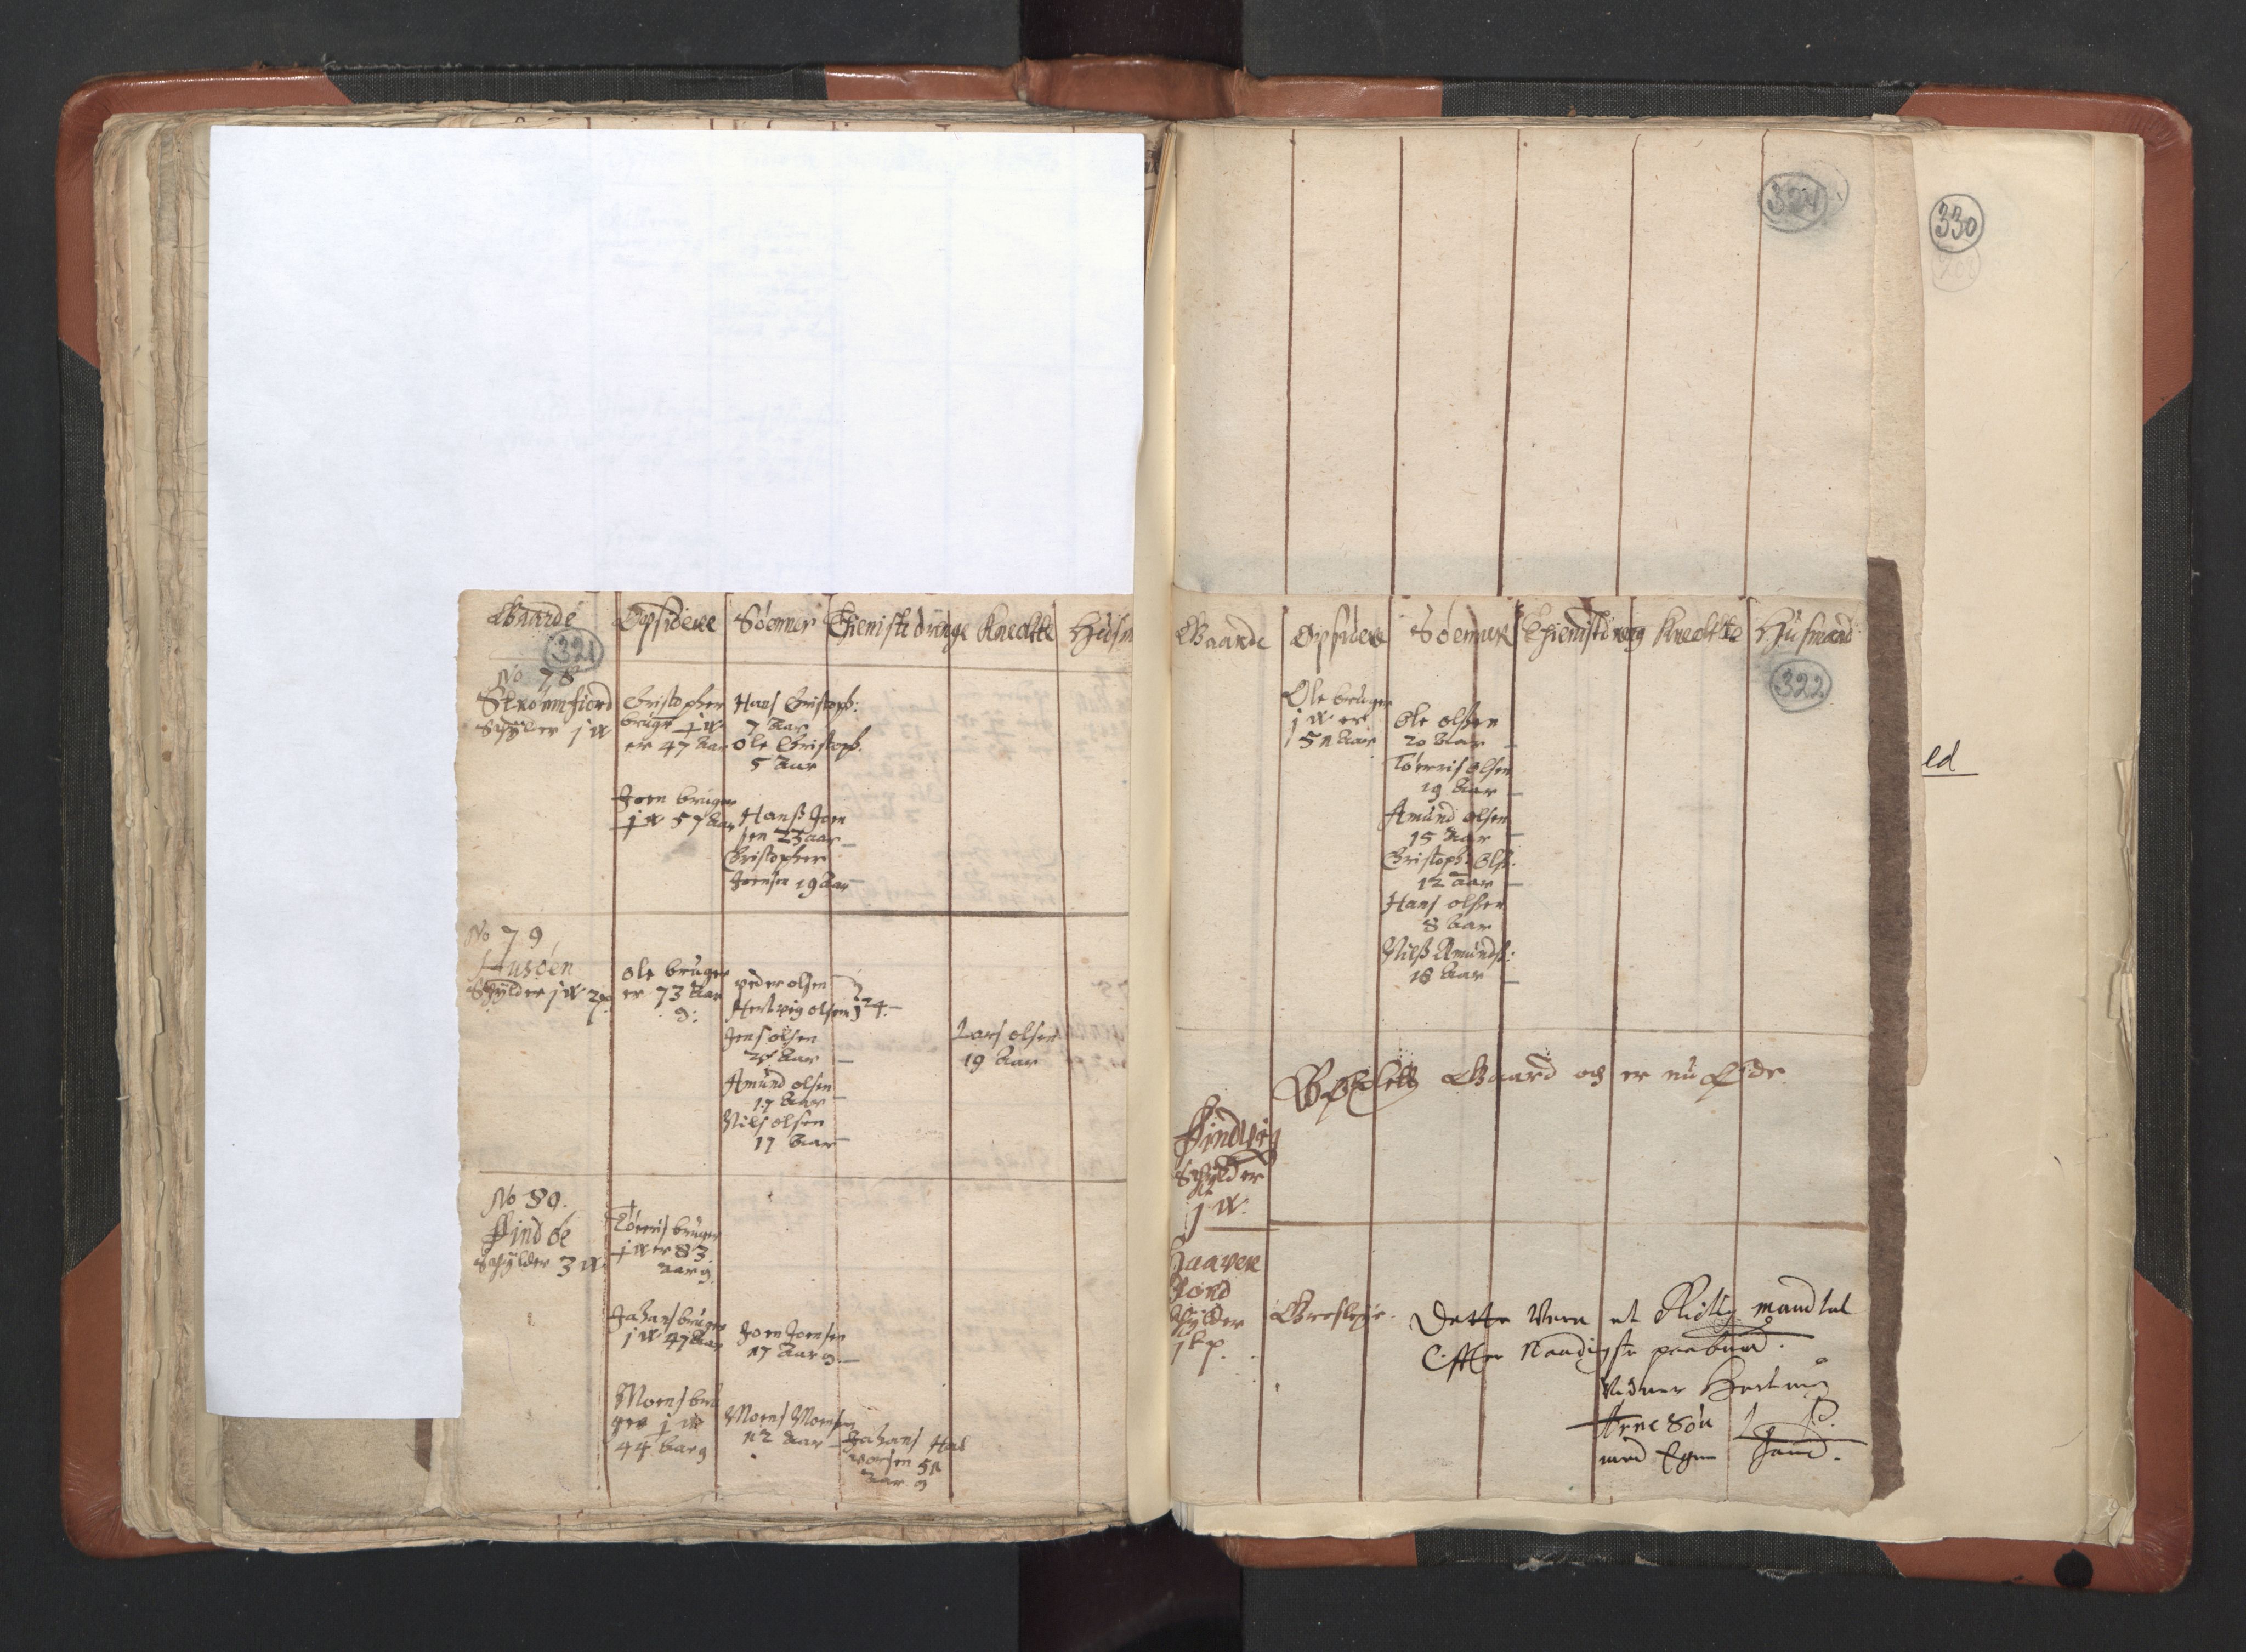 Gaarde Opsidere Sønner Thienistedrenge Knecktte Husm
321
No 78
Strømfiord
Schylder j w
Christopher
bruger j w
er 47 Aar
Hans Christoph:
7 Aar
Ole Christoph.
5 Aar
Joen bruger
j w 57 Aar
Hanss Joen
sen 23 aar
Christopher
Joensen 19 Aar
No 79
Husøen
Schylder j w 2
ole bruger
er 73 Aar
g:
peder olsen
Hertvig olsen 24
Jens olsen
Aar
Amund olsen
17 Aar
Nils olsen
17 Aar
Lars olsen
19 Aar
No 80.
Findøe
Schylder 3 w
Tørris bruger
j w er 83
Aar g.
Johans bruger
j w 47 Aar
Joen Joensen
17 Aar g.
Moens bru
ger j w
44 Aar g
Moens Moensen
12 Aar
Johans Hal
vorsen 51
Aar g
324
330
Gaarde Opsidere Sønner Thienistdreng Knecktte Husmænd
322
Ole bruger
j w er
51 Aar
Ole olssen
20 Aar
Tørris olsen
19 Aar
Amund olsen
15 Aar
Christoph: Ols:
12 Aar
Hans olssen
8 Aar
Nilss Amunds:
18 Aar
Gaard och er nu Øde
Findvig
Schylder
j w.
Haaven
Jord
Schylder
j kp.
Dette Vere et Rictig mandtal
Effter Naadigste paabud.
Vidner Hertvig
Arnesøn
med Egen Haand.
ed